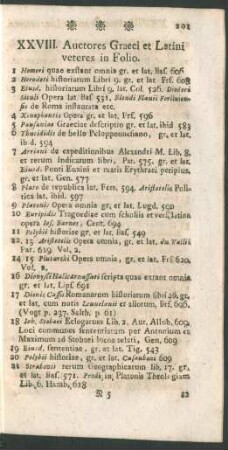 201
XXVIII. Auctores Graeci et Latini
veteres in Folio.
1 Homeri quae exstant omnia gr. et lat. Bas. 606
2 Herodoti historiarum Libri 9. gr. et lat Frf. 608
3 Eiusd. historiarum Libri 9. lat. Col. 526. Diodori
Siculi Opera lat Bas 531. Blondi Flauii Forliuien-
sis de Roma instaurata etc.
4 Xenophontis Opera gr. et lat. Frf. 596
5 Pausaniae Graeciae descriptio gr. et lat. ibid 583
6 Thucidides de bello Peloponnesiaco, gr. et lat.
ibid. 594
7 Arriani de expeditionibus Alexandri M. Lib. 8.
et rerum Indicarum libri, Par. 575. gr. et lat.
Eiusd. Ponti Euxini et maris Erythraei periplus,
gr. et lat. Gen. 577
8 Plato de republica lat. Fern. 594. Aristotelis Poli-
tica lat. ibid. 597
9 Platonis Opera omnia gr. et lat. Lugd. 590
10 Euripidis Tragoediae cum scholiis et vers. latina
opera Ios. Barnes, Cant. 694
11 Polybii historiae gr. et lat. Bas. 549
12. 13 Aristotelis Opera omnia, gr. et lat. du Vallii
Par. 619 Vol. 2.
14 15 Plutarchi Opera omnia, gr. et lat. Frf 620.
Vol. 2.
16 Dionysii Halicarnassei scripta quae extant omnia
gr. et lat. Lips. 691
17 Dionis Cassii Romanarum historiarum libri 26. gr.
et lat, cum notis Leunclauii et aliorum, Frf. 606.
(Vogt p. 237. Salth. p. 61)
18 Ioh. Stobaei Eclogarum Lib. 2. Aur. Allob. 609.
Loci communes sententiarum per Antonium et
Maximum ad Stobaei locos relati, Gen. 609
19 Eiusd. sententiae, gr. et lat. Tig. 543
20 Polybii historiae, gr. et lat. Casauboni 609
21 Strabonis rerum Geographicarum lib. 17. gr.
et lat. Bas. 571. Procli, in Platonis Theologiam
Lib. 6. Hamb. 618
N 5
22